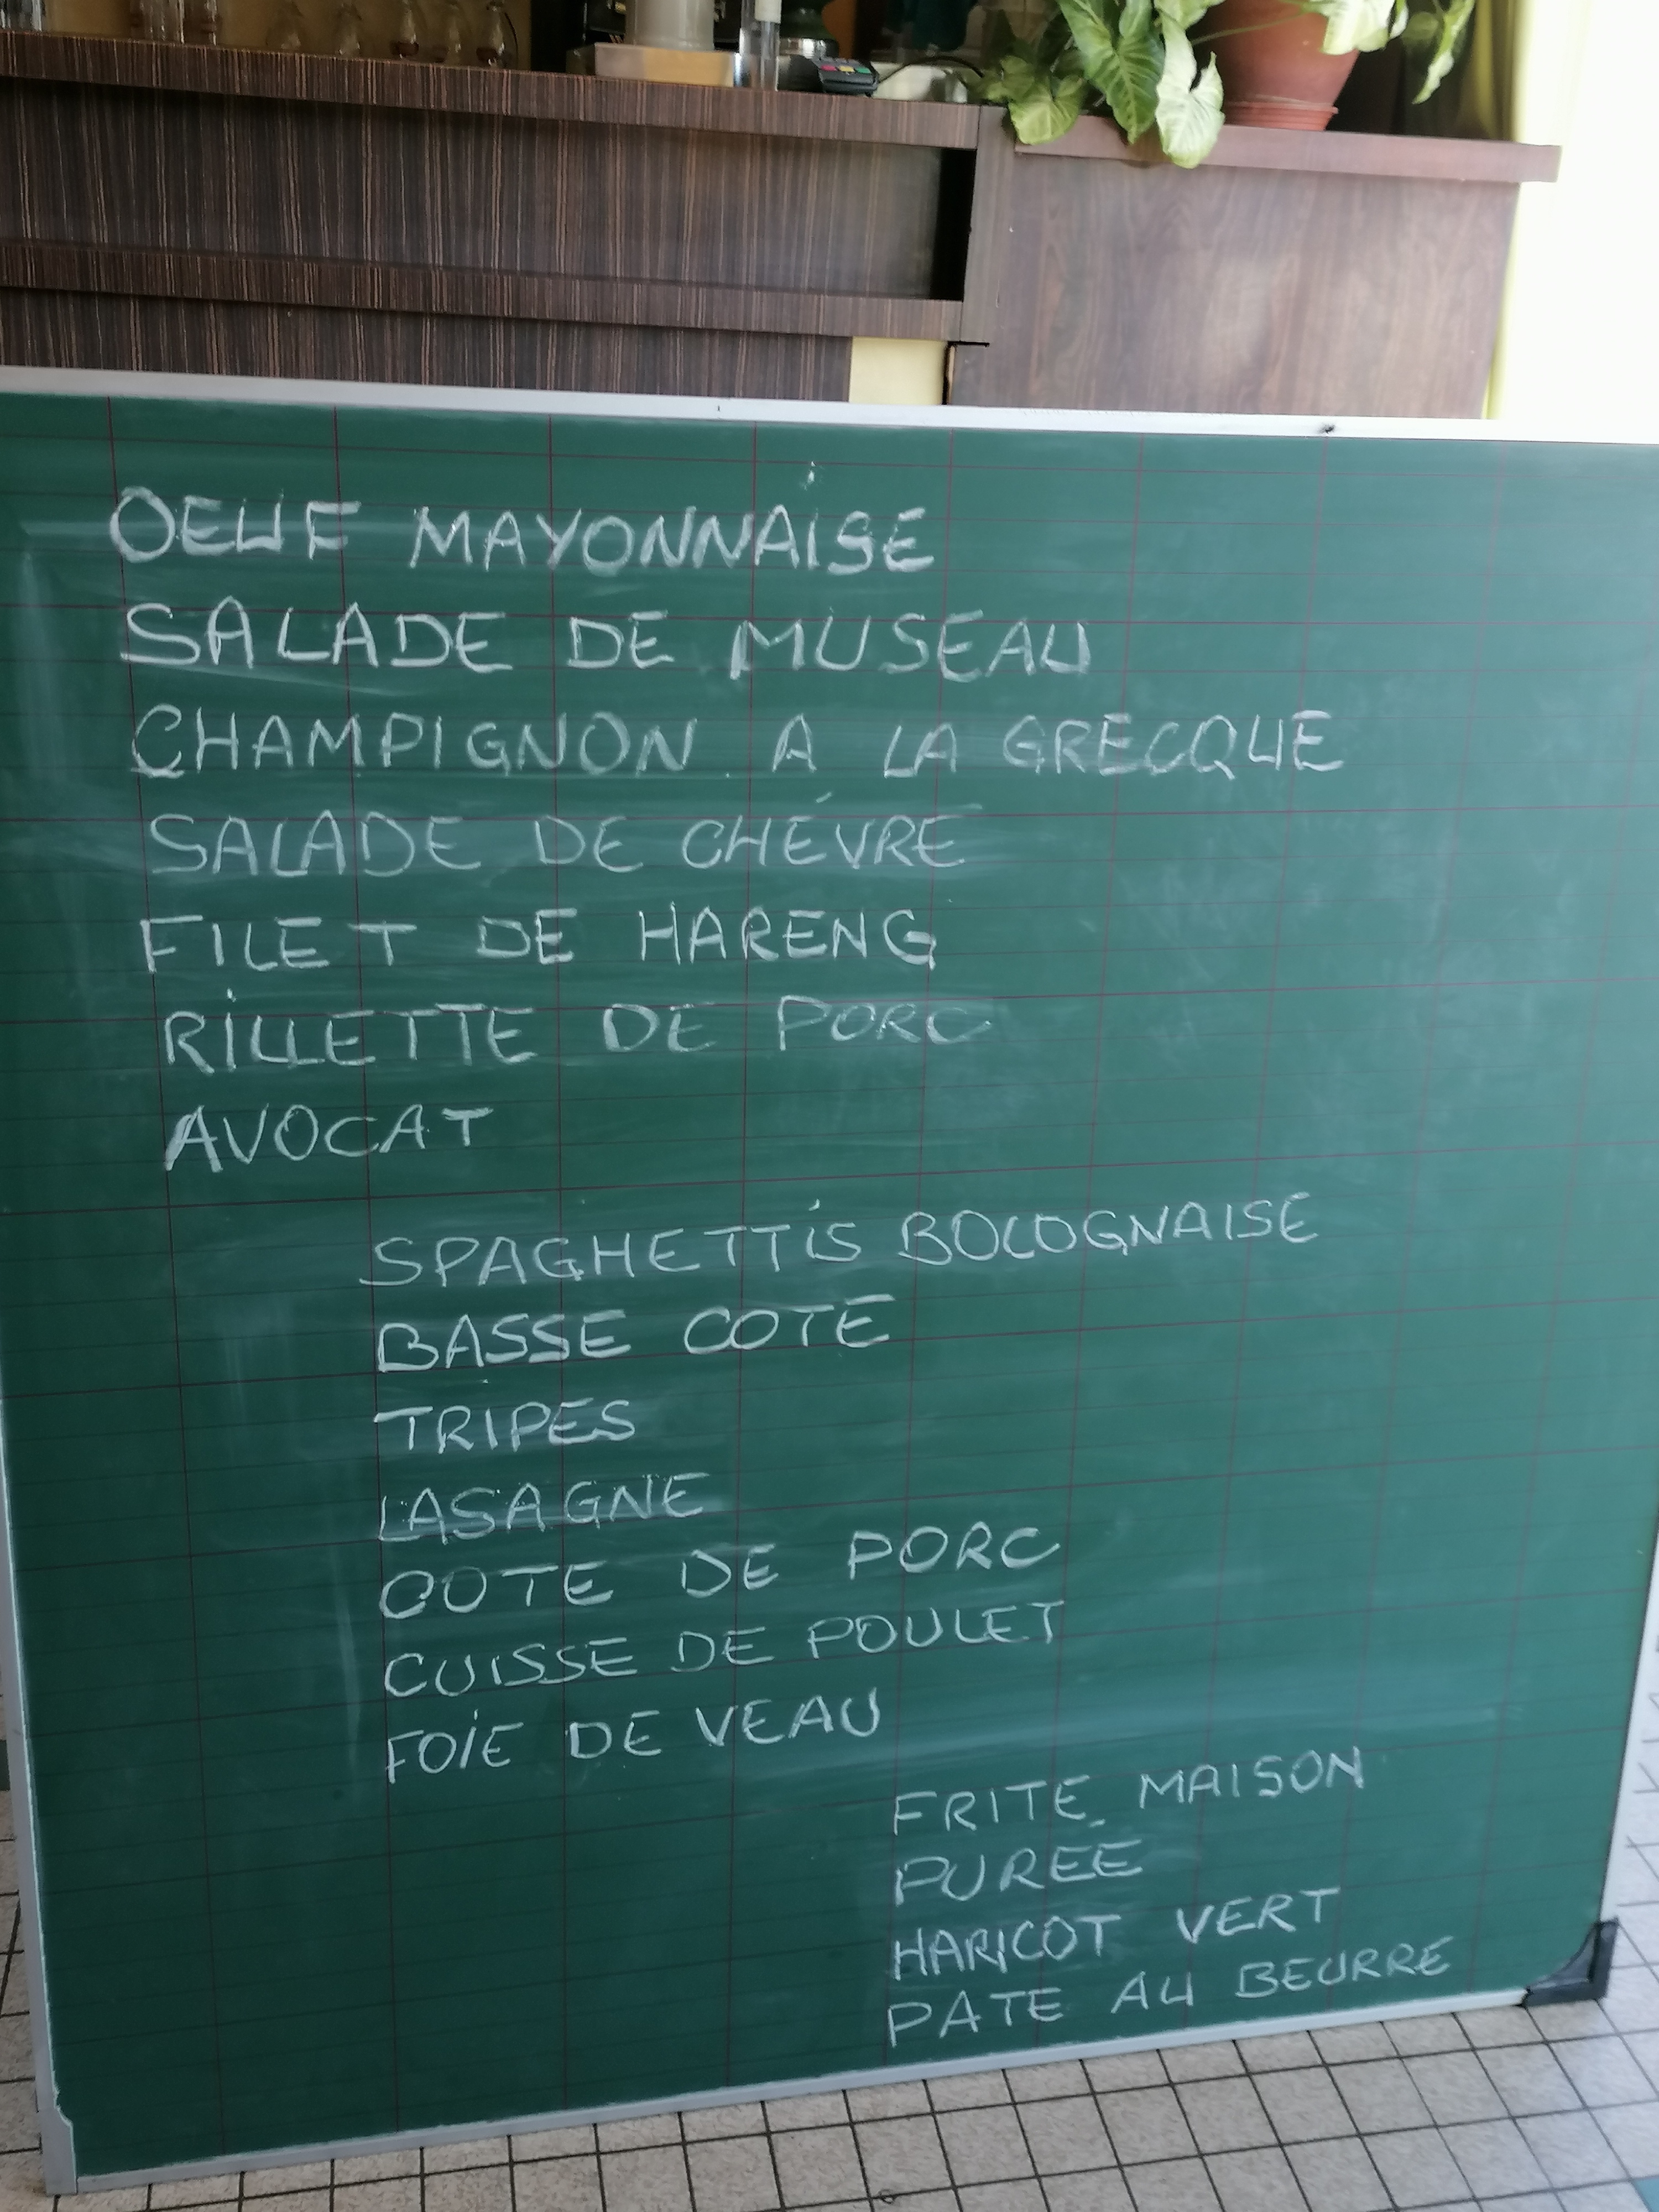 OEUF MAYONNAISE
SALADE DE MUSEAU
CHAMPIGNON A LA GRECQUE
SALADE DE CHÉVRE
FILET DE HARENG
RILLETTE DE PORC
AVOCAT
SPAGHETTIS BOLOGNAISE
BASSE COTE
TRIPES
LASAGNE
COTE DE PORC
CUISSE DE POULET
FOIE DE VEAU
FRITE MAISON
PURÉE
HARICOT VERT
PATE AU BEURRE